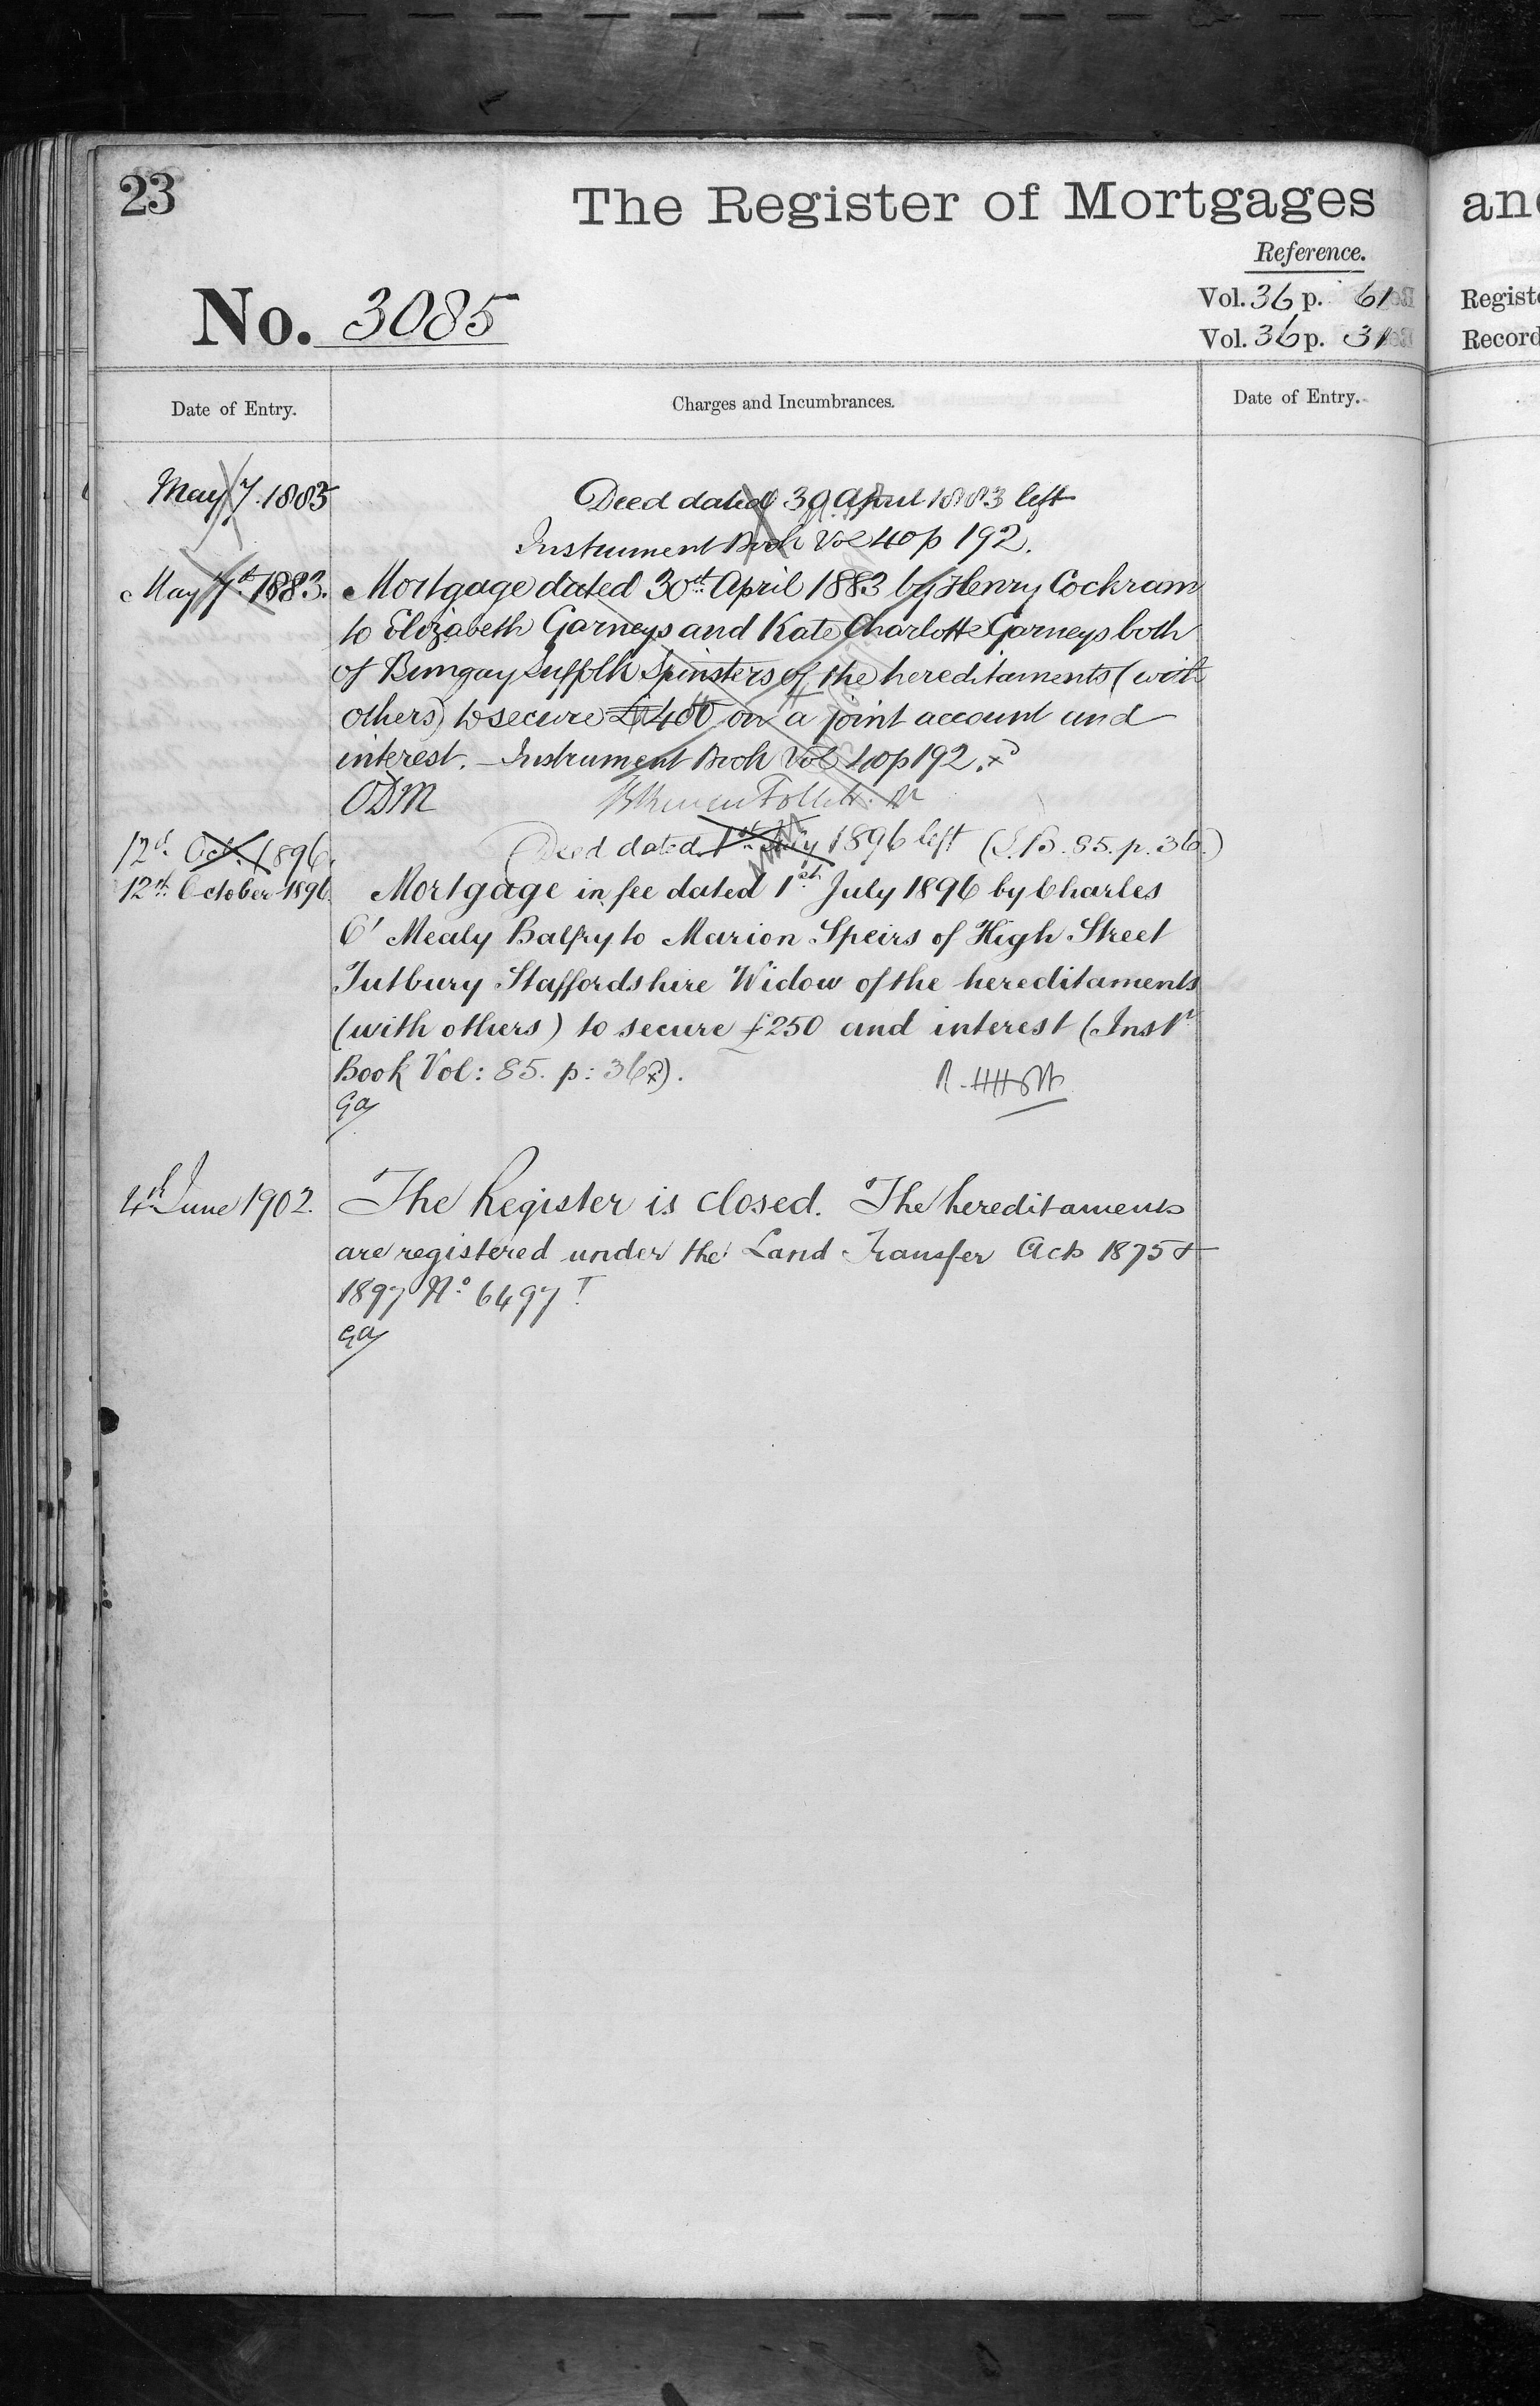 23
The Register of Mortgages
Reference.
No. 3085
Vol. 36 p. 61
Vol. 36 p. 31
Date of Entry.
Charges and Incumbrances.
Date of Entry.
May 7. 1883
Deed dated 30 April 1883 left
Instrument Book Vol 40 p 192.
May 7th 1883.
Mortgage dated 30th April 1883 by Henry Cockram
to Elizabeth Garneys and Kate Charlotte Garneys both
of Bungay Suffolk Spinsters of the hereditaments (with
others) to secure £400 on a joint account and
interest. – Instrument Book Vol 40 p 192.
ODM
12th Oct. 1896.
Deed dated 1st July 1896 left (I.B. 85. p. 36.)
12th October 1896.
Mortgage in fee dated 1st July 1896 by Charles
O' Mealy Balfry to Marion Speirs of High Street
Tutbury Staffordshire Widow of the hereditaments
(with others) to secure £250 and interest (Inst
Book Vol: 85. p: 36).
GA
4th June 1902.
The Register is closed. The hereditaments
are registered under the Land Transfer Acts 1875 &
1897 No. 6497
GA
and
Regist
Record